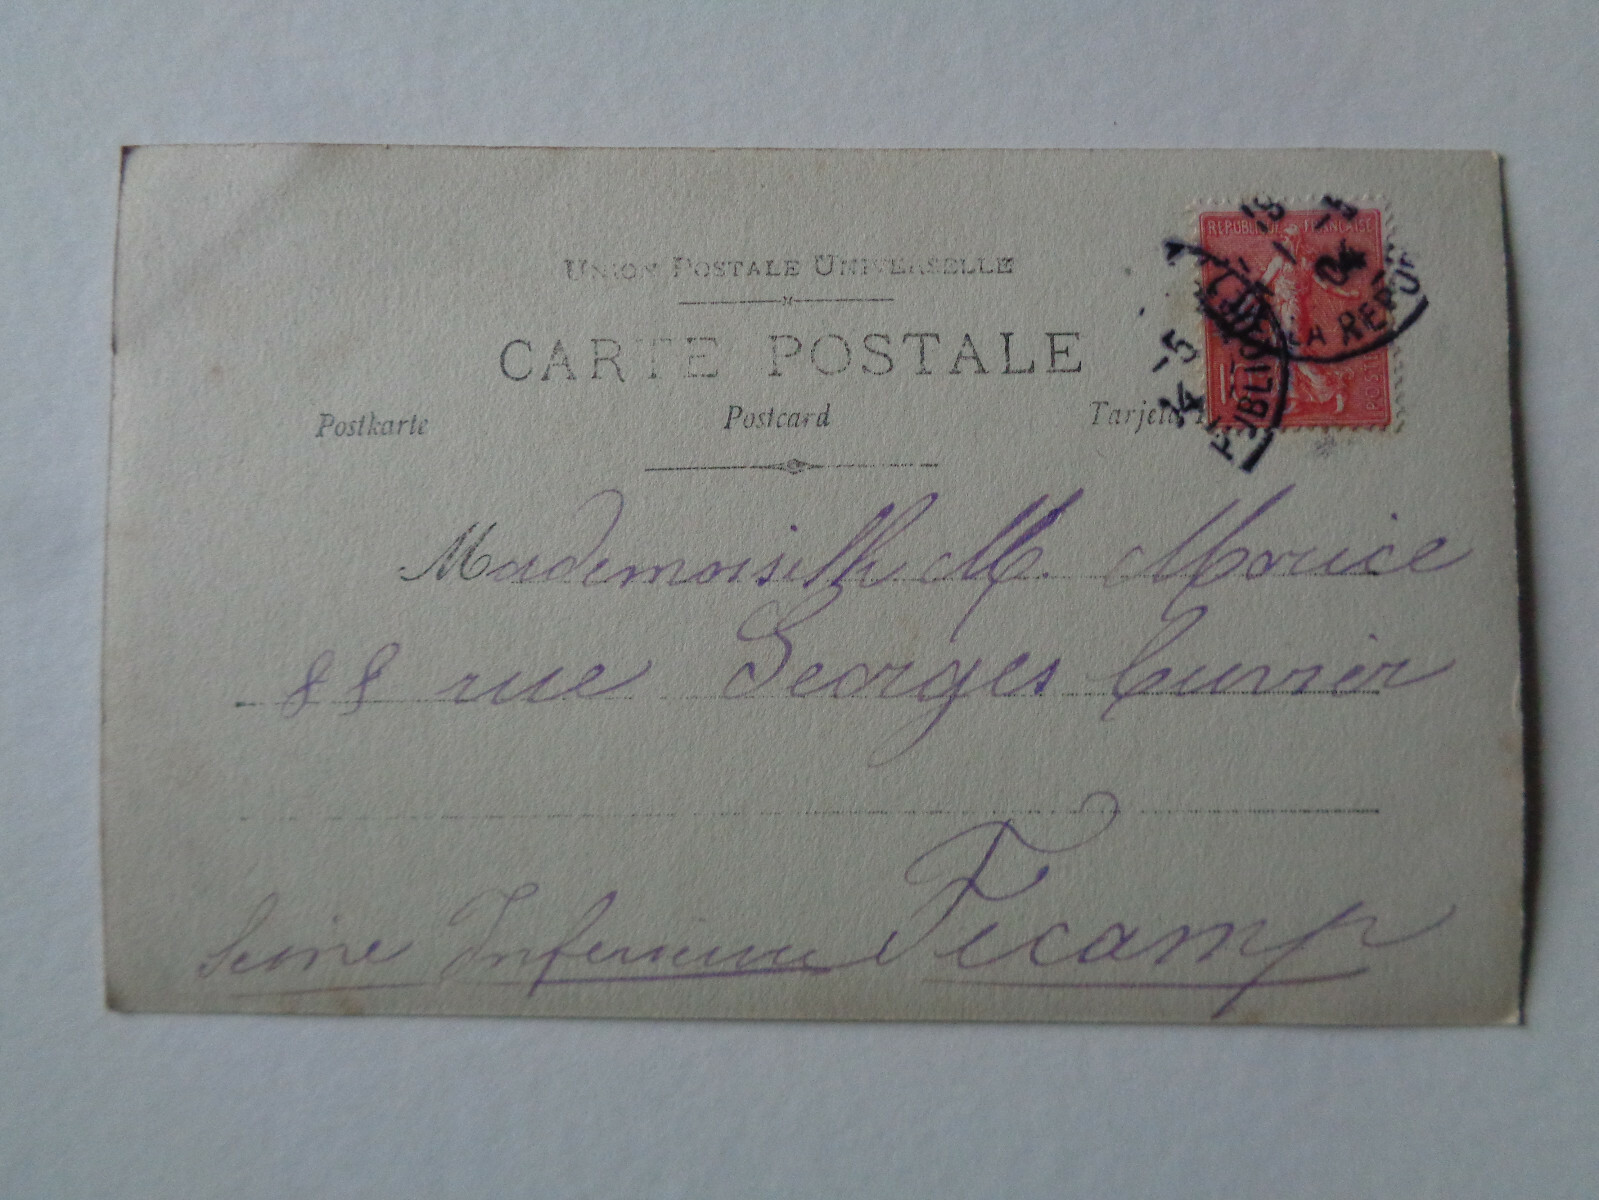 UNION POSTALE UNIVERSELLE
CARTE POSTALE
Postkarte Postcard Tarjeta
REPUBLIQUE FRANCAISE
POSTES
LA REPU
PUBLIQUE
04
Mademoiselle M. Morice
88 rue Georges Cuvier
Fecamp
Seine Inferieure